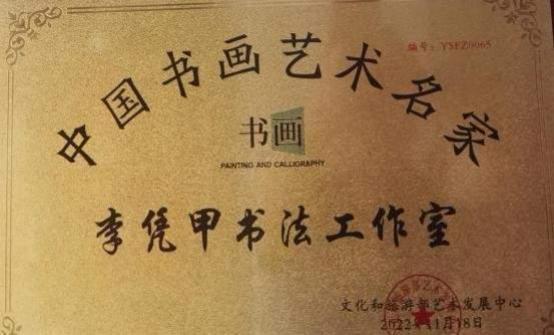 编号：YSFZ0065
中国书画艺术名家
书画
PAINTING AND CALLIGRAPHY
李凭甲书法工作室
文化和旅游部艺术发展中心
2022年11月18日